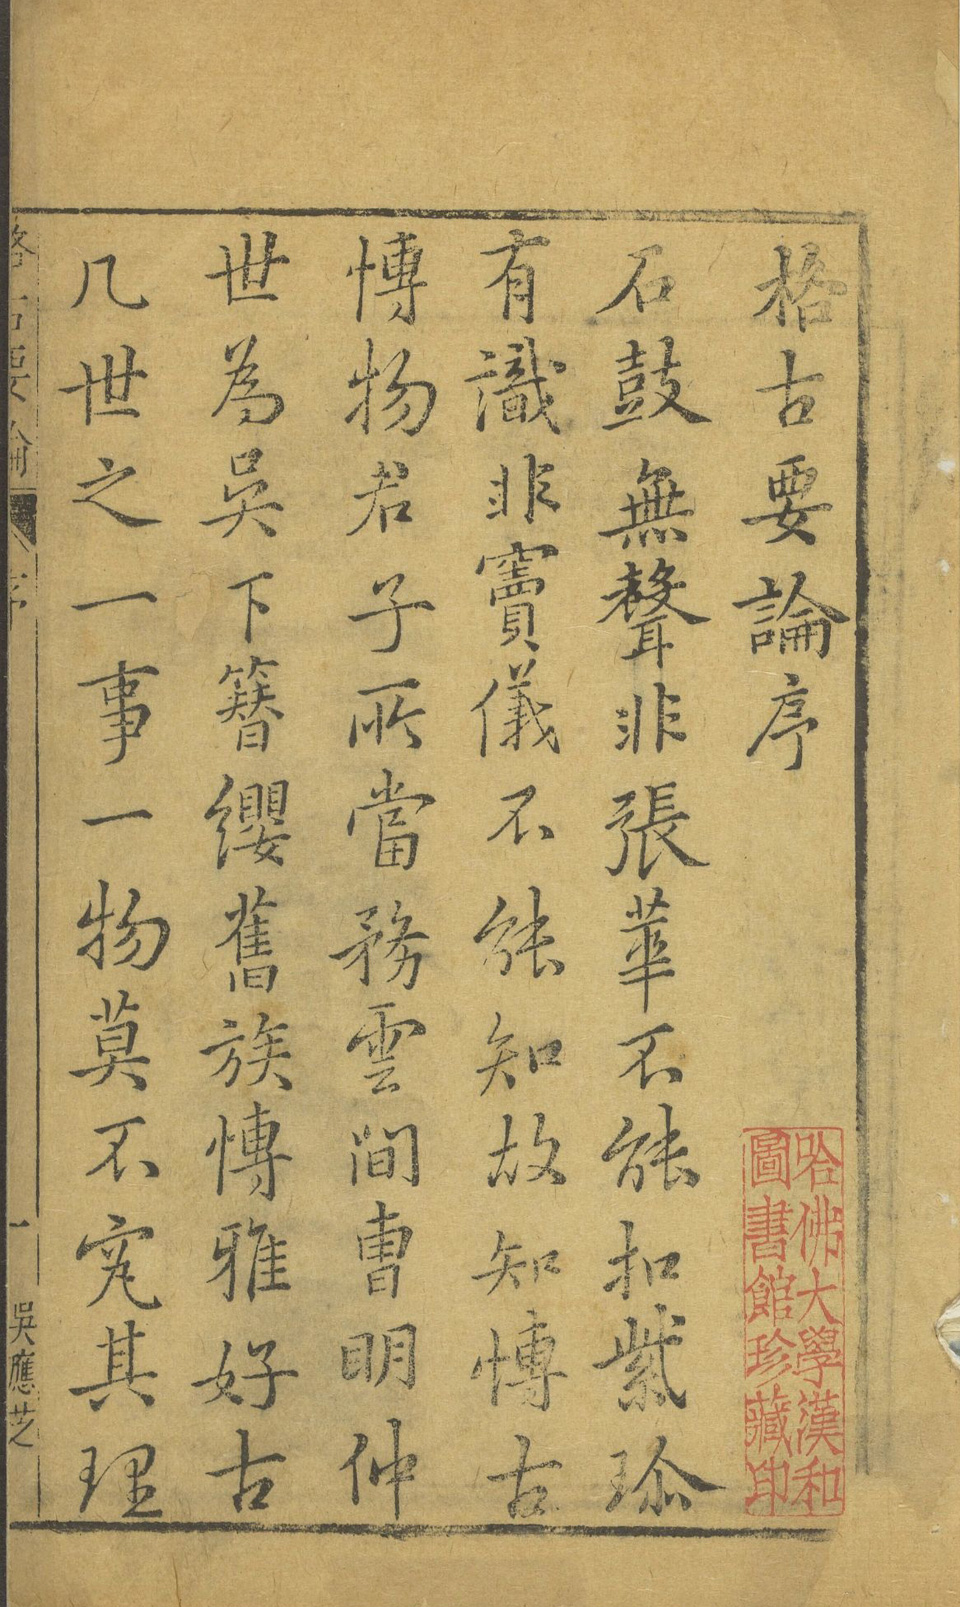 格古要論序
石鼓無聲非張華不能扣紫珎
有識非竇儀不能知故知博古
博物君子所當務雲間曹明仲
世為吳下簪纓舊族博雅好古
凡世之一事一物莫不究其理
哈佛大學漢和
圖書館珍藏印
格古要論
序
一
吳應芝